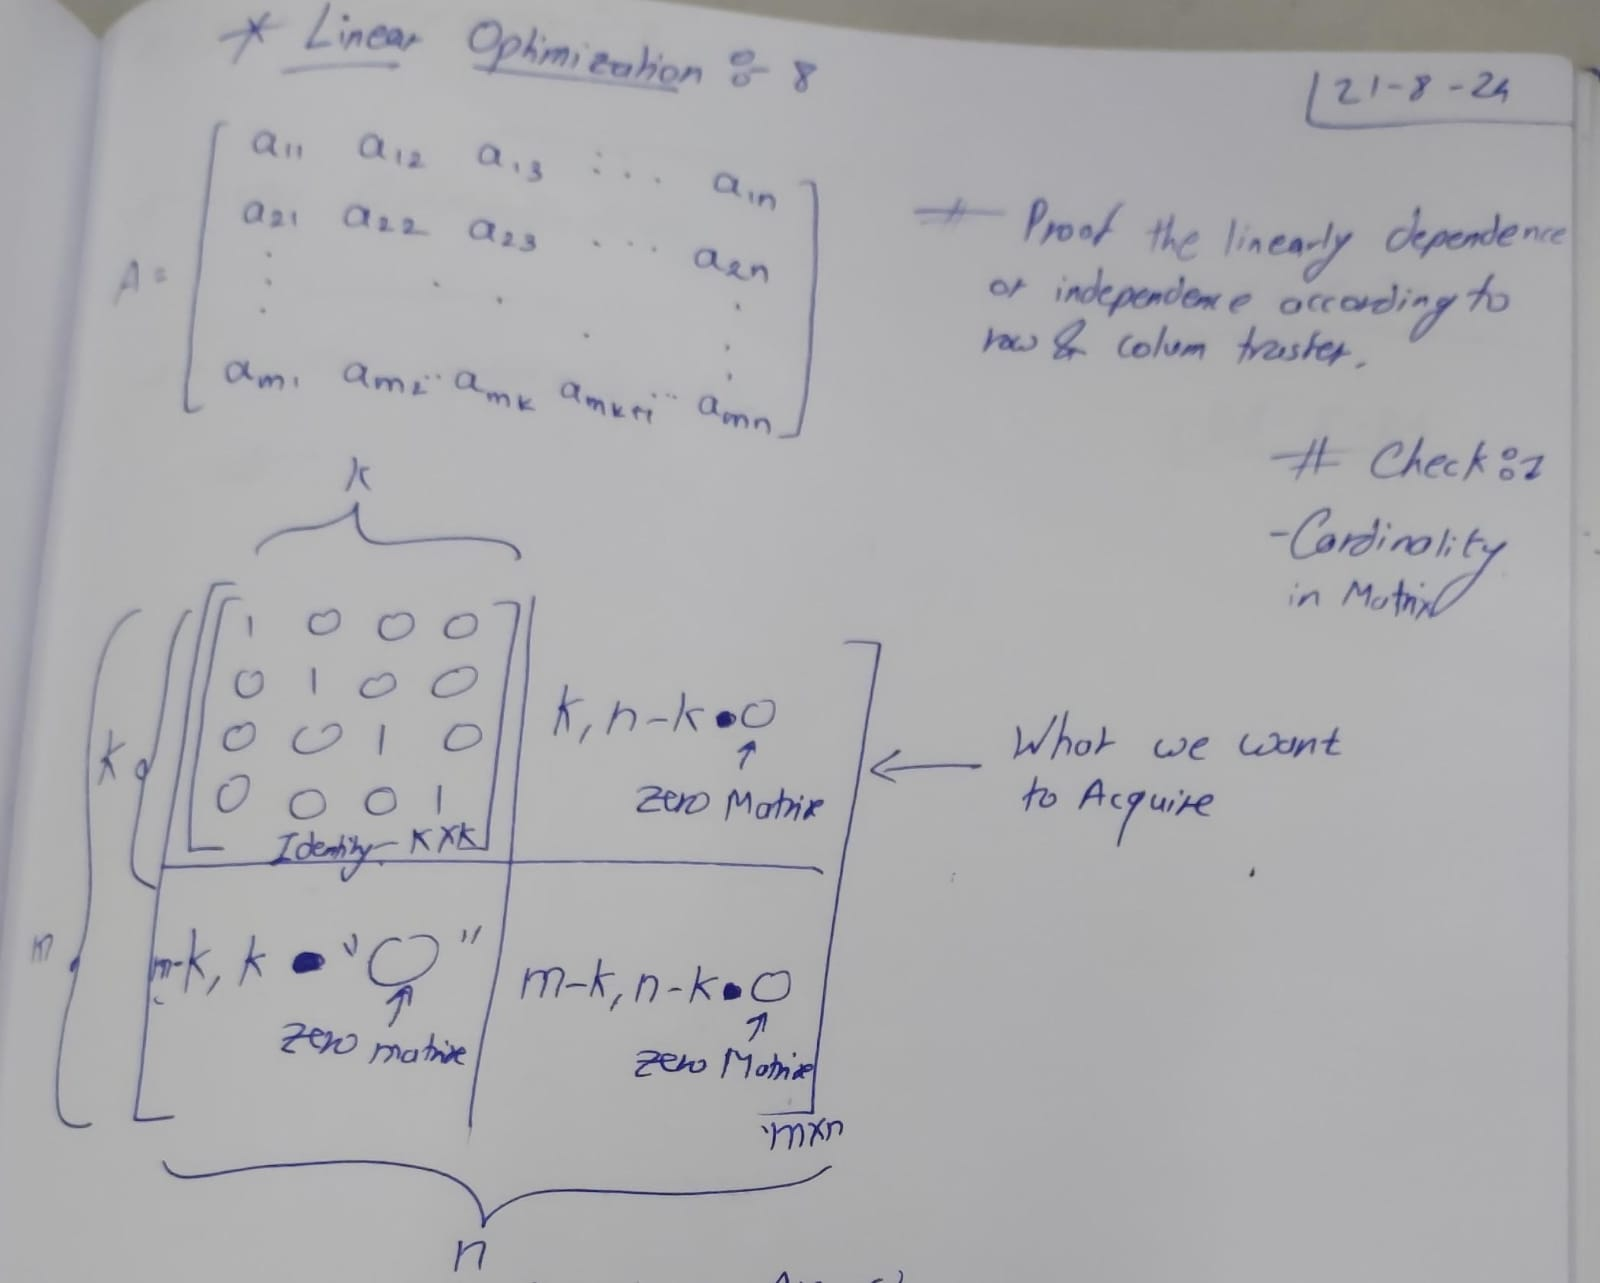 * Linear Optimization :- 8
21-8-24
a11 a12 a13 ... a1n
a21 a22 a23 ... a2n
A=
am1 am2 .. amk amk+1 .. amn
# Proof the linearly dependence
or independence according to
row & colum
# Check :-
- Cardinality
in Matrix
k
1 0 0 0
0 1 0 0
0 0 1 0
0 0 0 1
Identity - k×k
k
k, n-k • 0
↑
zero Matrix
← What we want
to Acquire
m
m-k, k • "0"
↑
zero matrix
m-k, n-k • 0
↑
zero Matrix
m×n
n